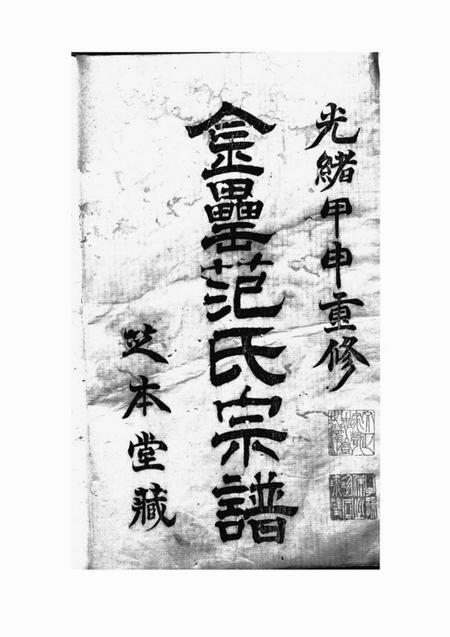 光緒甲申重修
金罍范氏宗譜
芝本堂藏